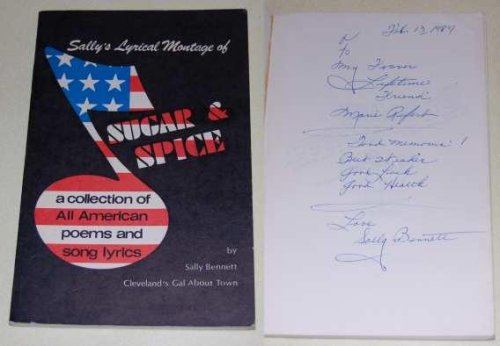 Sally's Lyrical Montage of
SUGAR &
SPICE
a collection of
All American
poems and
song lyrics
by
Sally Bennett
Cleveland's Gal About Town
Feb. 13, 1989
To
My
Lifetime
Friend
Marie
Fond Memories !
Good Luck
Good Health
Love
Sally Bennett